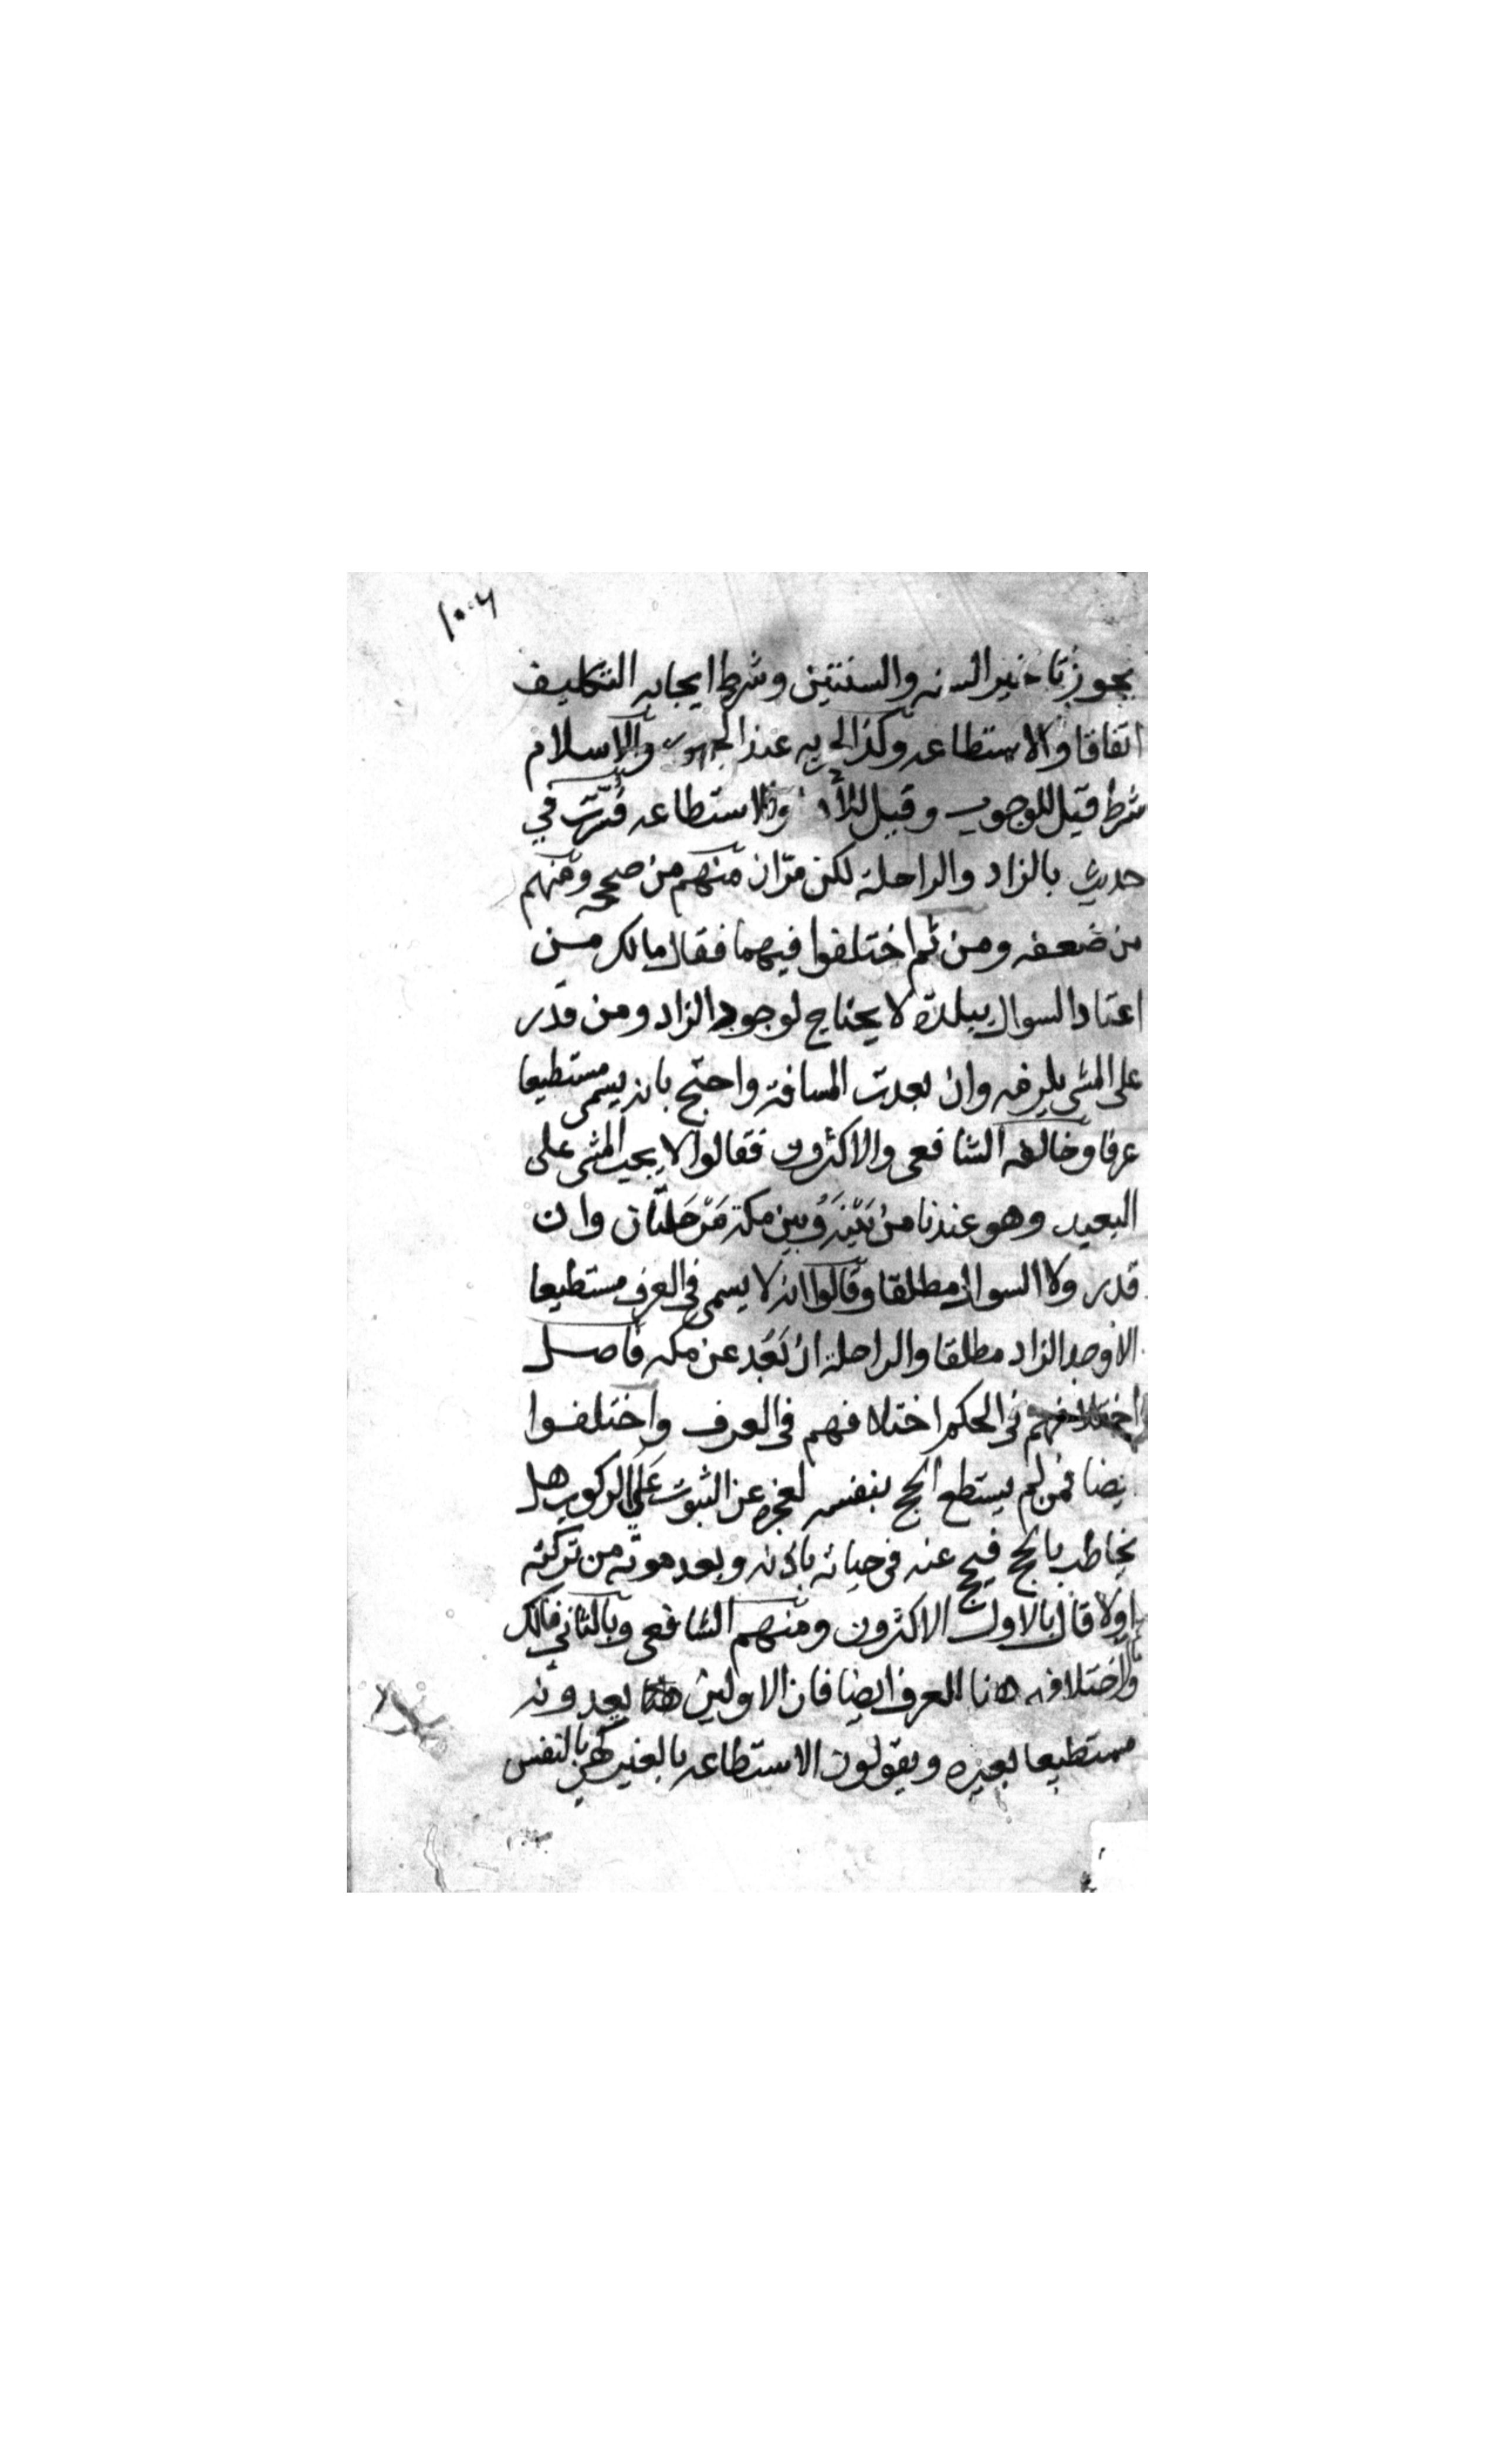 ١٠٠٦
يجوز تاخير السنه والسنتين وشرط ايجابه التكليف
اتفاقا والاستطاعه وكذا الحريه عند الجمهور والاسلام
شرط قيل للوجوب وقيل للأدا والاستطاعه فسرت في
حديث بالزاد والراحلة لكن مرّ ان منهم من صححه ومنهم
من ضعفه ومن ثم اختلفوا فيهما فقال مالك من
اعتاد السوال ببلده لا يحتاج لوجود الزاد ومن قدر
على المشي يلزمه وان بعدت المسافة واحتج بانه يسمى مستطيعا
عرفا وخالفه الشافعي والاكثرون فقالوا لا يجب المشي على
البعيد وهو عندنا من بَيْنَه وَبين مكة مَرْحَلتَان وان
قدر ولا السوال مطلقا وقالوا انه لا يسمى في العرف مستطيعا
الا وجد الزاد مطلقا والراحلة ان بَعُد عن مكه فاصل
اختلافهم في الحكم اختلافهم في العرف واختلفوا
ايضا فمن لم يستطع الحج بنفسه لعجزه عن الثبوت عَلَى الركوب هل
يخاطب بالحج فيحج عنه في حياته باذنه وبعد موته من تركته
اولا قال بالاول الاكثرون ومنهم الشافعي وبالثاني مالك
واختلافه هنا العرف ايضا فان الاولين يعدونه
مستطيعا بغيره ويقولون الاستطاعه بالغير كهي بالنفس